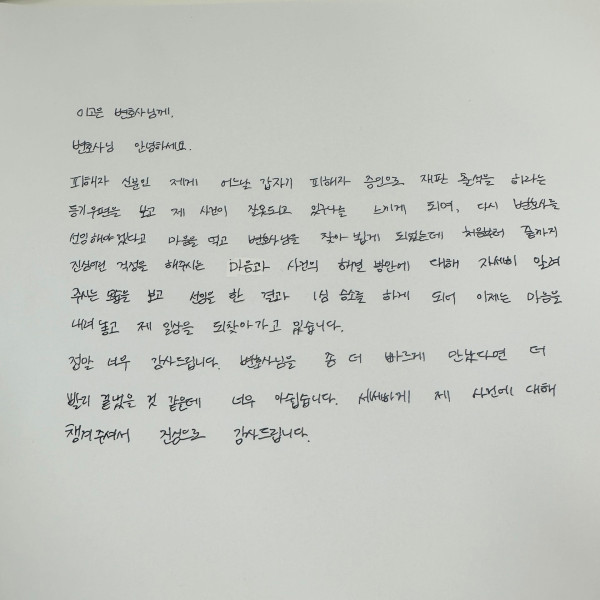 이고은 변호사님께.
변호사님 안녕하세요.
피해자 신분인 제게 어느날 갑자기 피해자 증인으로 재판 출석을 하라는
등기우편을 보고 제 사건이 잘못되고 있구나를 느끼게 되며, 다시 변호사를
선임해야겠다고 마음을 먹고 변호사님을 찾아 뵙게 되었는데 처음부터 끝까지
진심어린 걱정을 해주시는 마음과 사건의 해결 방안에 대해 자세히 알려
주시는 모습을 보고 선임을 한 결과 1심 승소를 하게 되어 이제는 마음을
내려 놓고 제 일상을 되찾아가고 있습니다.
정말 너무 감사드립니다. 변호사님을 좀 더 빠르게 만났다면 더
빨리 끝났을 것 같은데 너무 아쉽습니다. 세세하게 제 사건에 대해
챙겨주셔서 진심으로 감사드립니다.